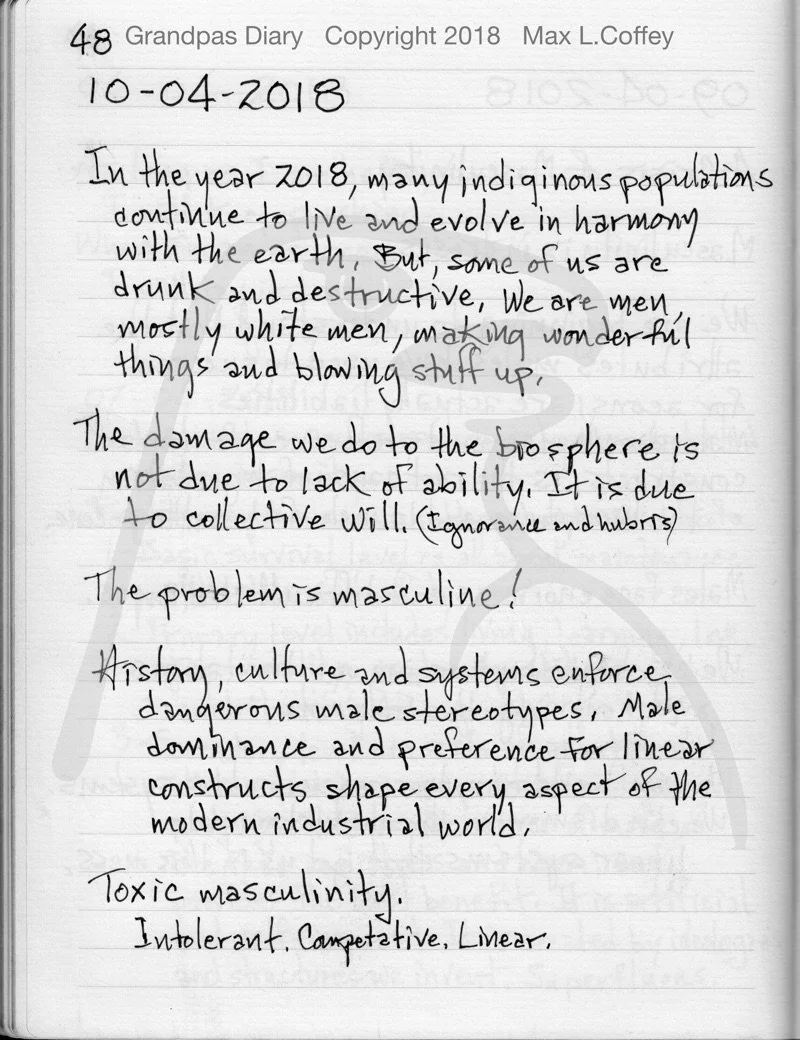 48 Grandpas Diary Copyright 2018 Max L.Coffey
10-04-2018
In the year 2018, many indiginous populations
continue to live and evolve in harmony
with the earth. But, some of us are
drunk and destructive. We are men,
mostly white men, making wonderful
things and blowing stuff up.
The damage we do to the biosphere is
not due to lack of ability. It is due
to collective will. (Ignorance and hubris)
The problem is masculine!
History, culture and systems enforce
dangerous male stereotypes. Male
dominance and preference for linear
constructs shape every aspect of the
modern industrial world.
Toxic masculinity.
Intolerant. Competative. Linear.